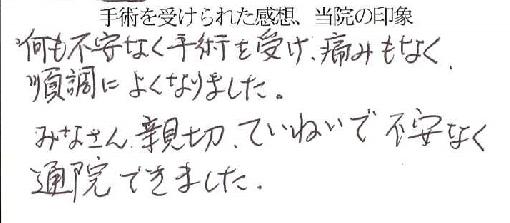 手術を受けられた感想、当院の印象
何も不安なく手術を受け、痛みもなく、
順調によくなりました。
みなさん、親切、ていねいで不安なく
通院できました。